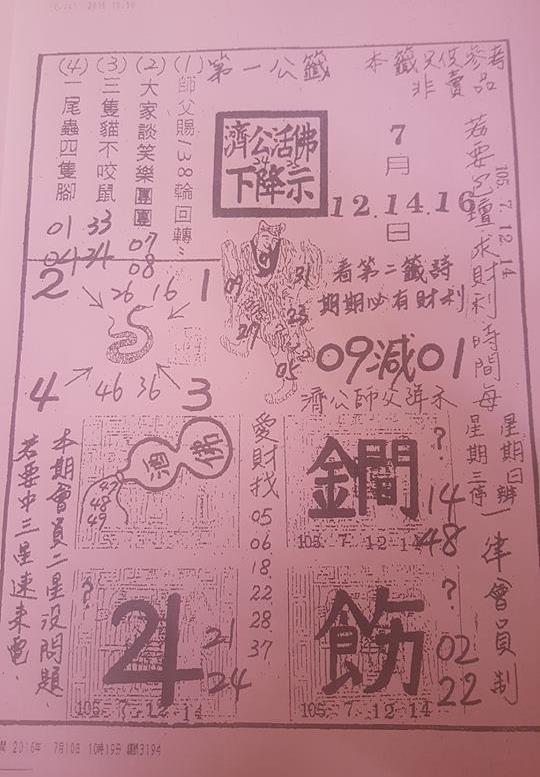 第一公籤
本籤只供參考
非賣品
(1)師父賜138輪回轉
(2)大家談笑樂團團
07
08
(3)三隻貓不咬鼠
33
34
(4)一尾蟲四隻腳
01
04
濟公活佛
下降示
7
月
12.14.16
日
105.7.12.14
看第二籤詩
期期必有財利
09減01
濟公師父詳示
09
31
29
23
05
2
26
16
1
5
4
46
36
3
酒
佛
47
48
49
愛財找
05
06
18
22
28
37
鐗
?
14
48
105.7.12-14
?
4
21
24
105.7.12.14
飭
?
02
22
105.7.12-14
求財利時間每
星期日辦
星期三停
一律會員制
本期會員二星沒問題.
若要中三星速來電.
2016年 7月10日 10時19分